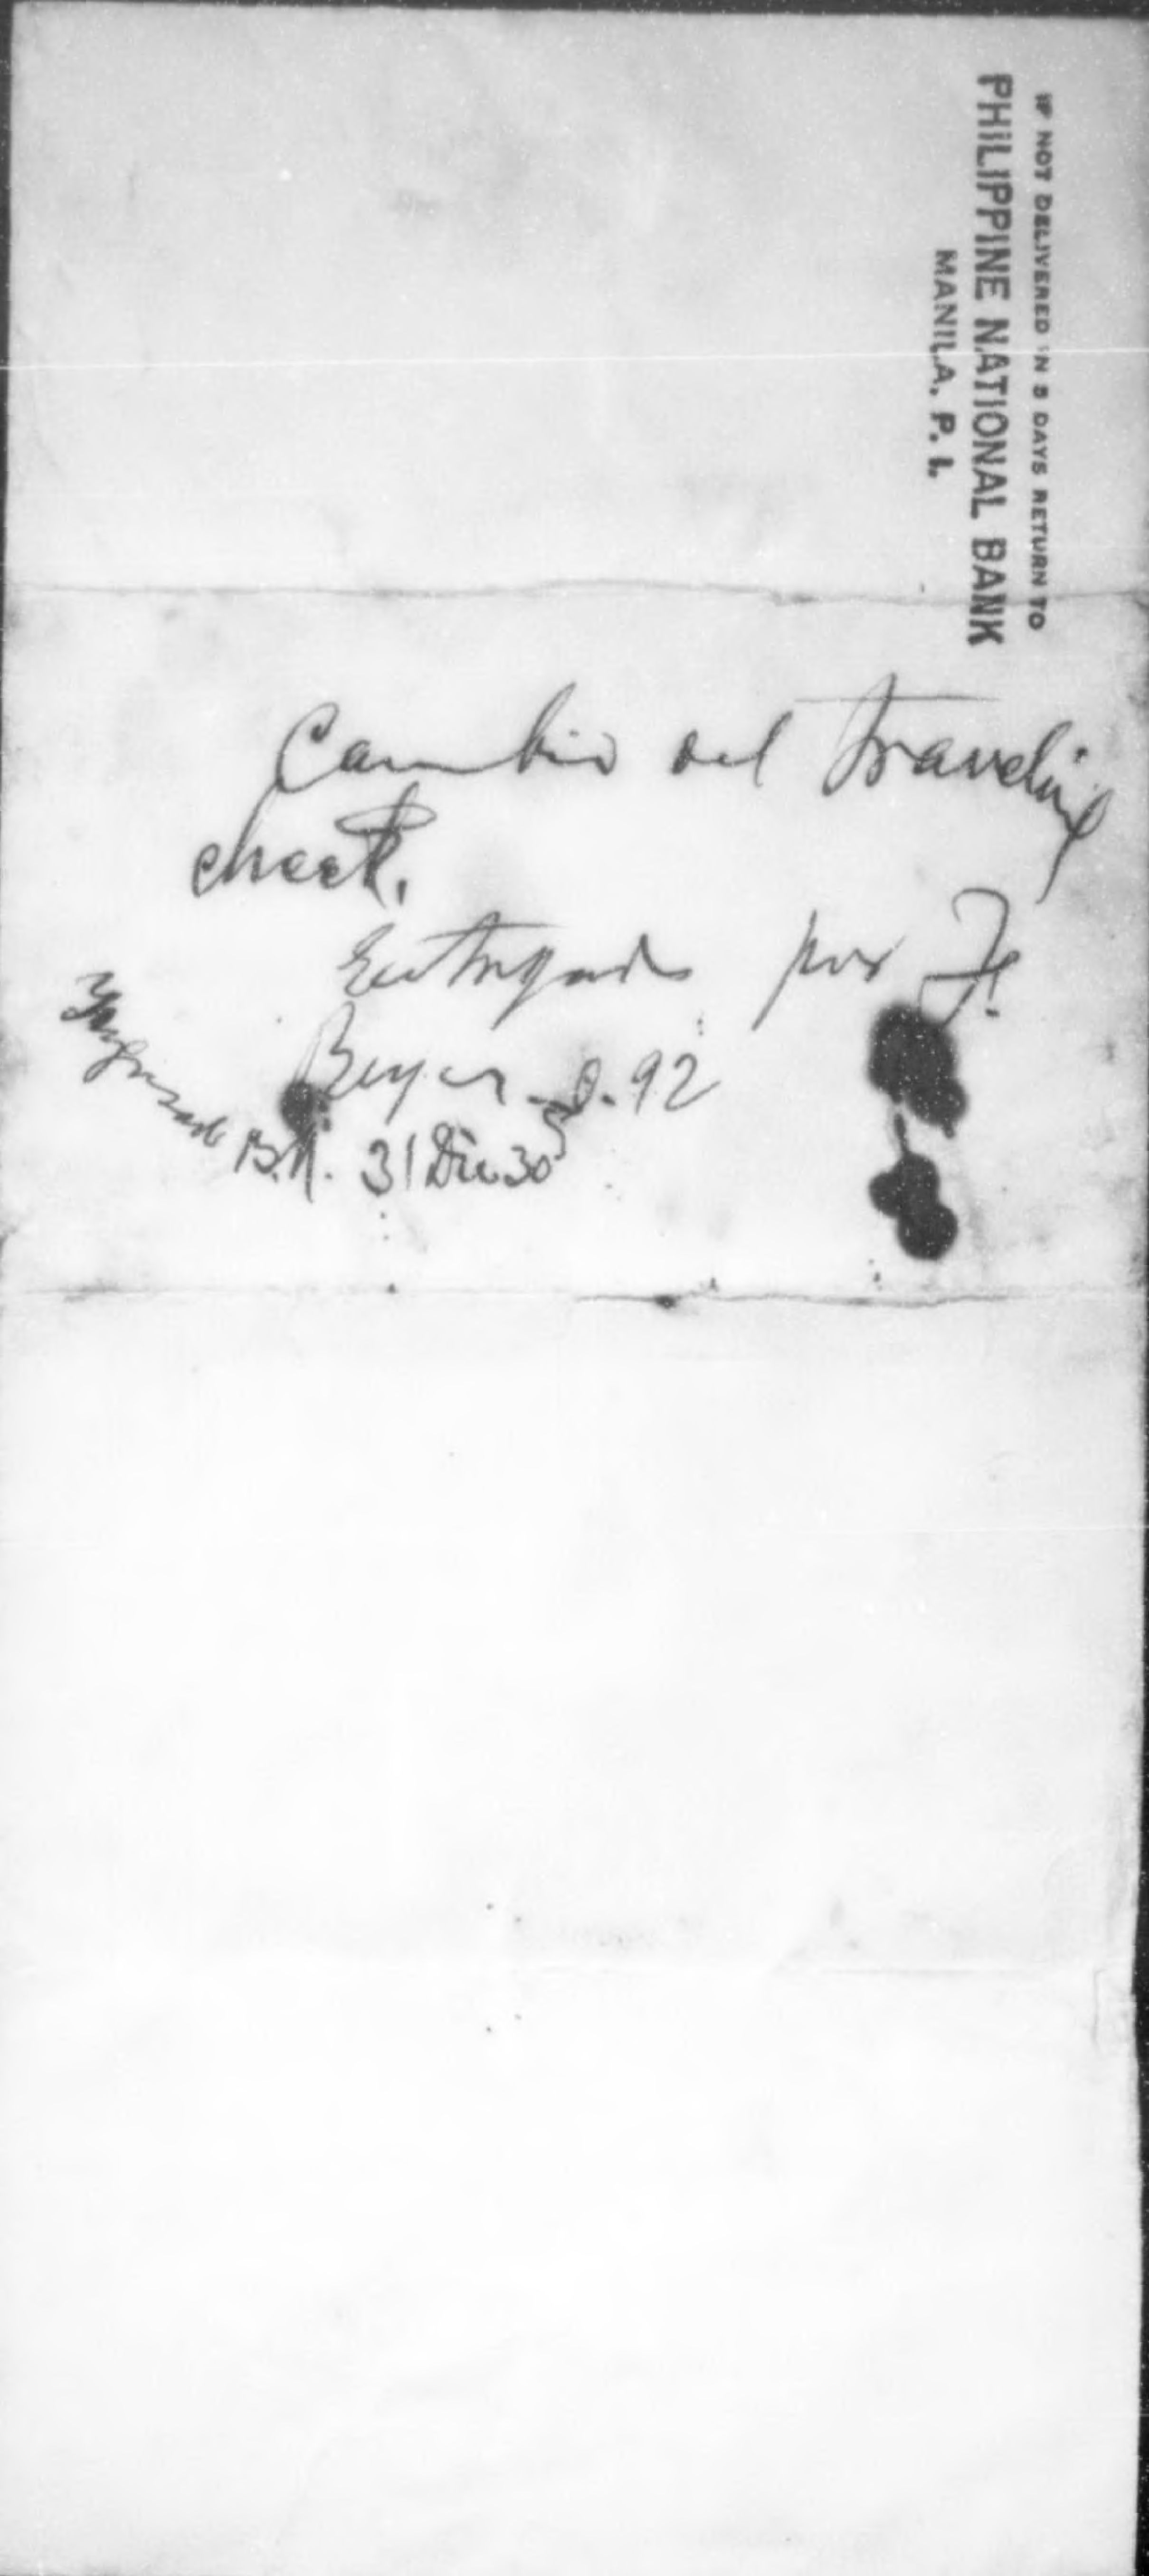 IF NOT DELIVERED IN 5 DAYS RETURN TO
PHILIPPINE NATIONAL BANK
MANILA, P. I.
Cambio del Traveling
check.
Entregado por F.
Beyer 92
Ingresado B.N. 31 Dic 30